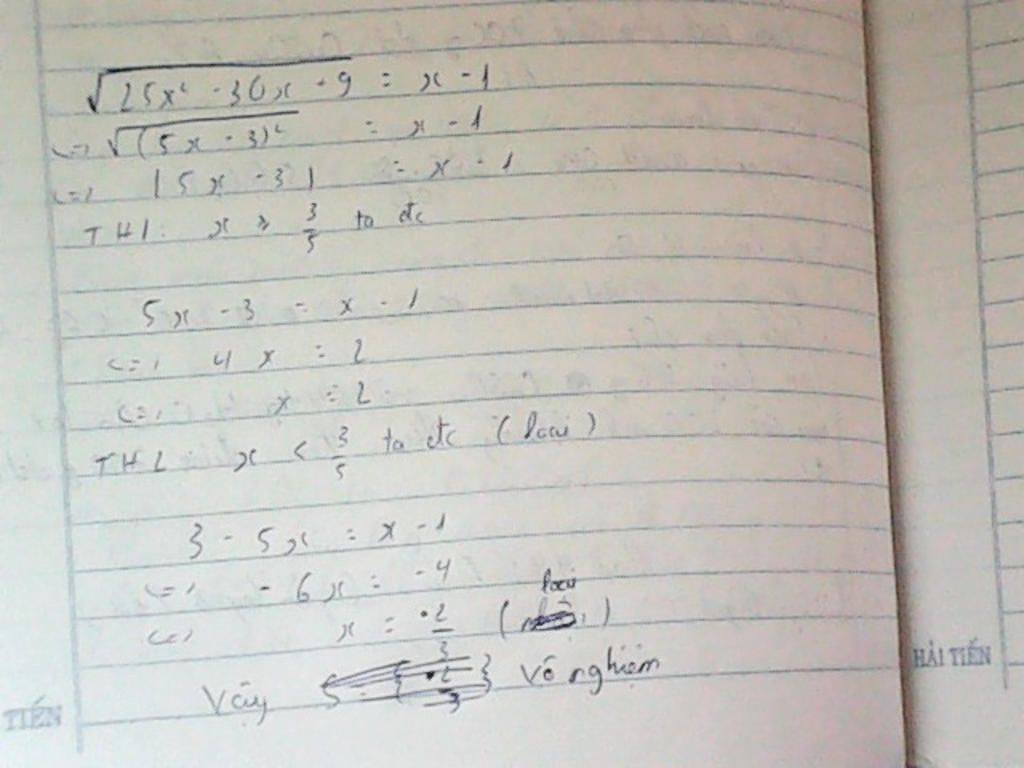 √(25x² - 30x + 9) = x - 1
<=> √((5x - 3)²) = x - 1
<=> |5x - 3| = x - 1
TH1: x ≥ 3/5 ta đc
5x - 3 = x - 1
<=> 4x = 2
<=> x = 2
TH2 x < 3/5 ta đc (loại)
3 - 5x = x - 1
<=> -6x = -4
<=> x = 2/3 (loại)
Vậy vô nghiệm
TIẾN
HẢI TIẾN